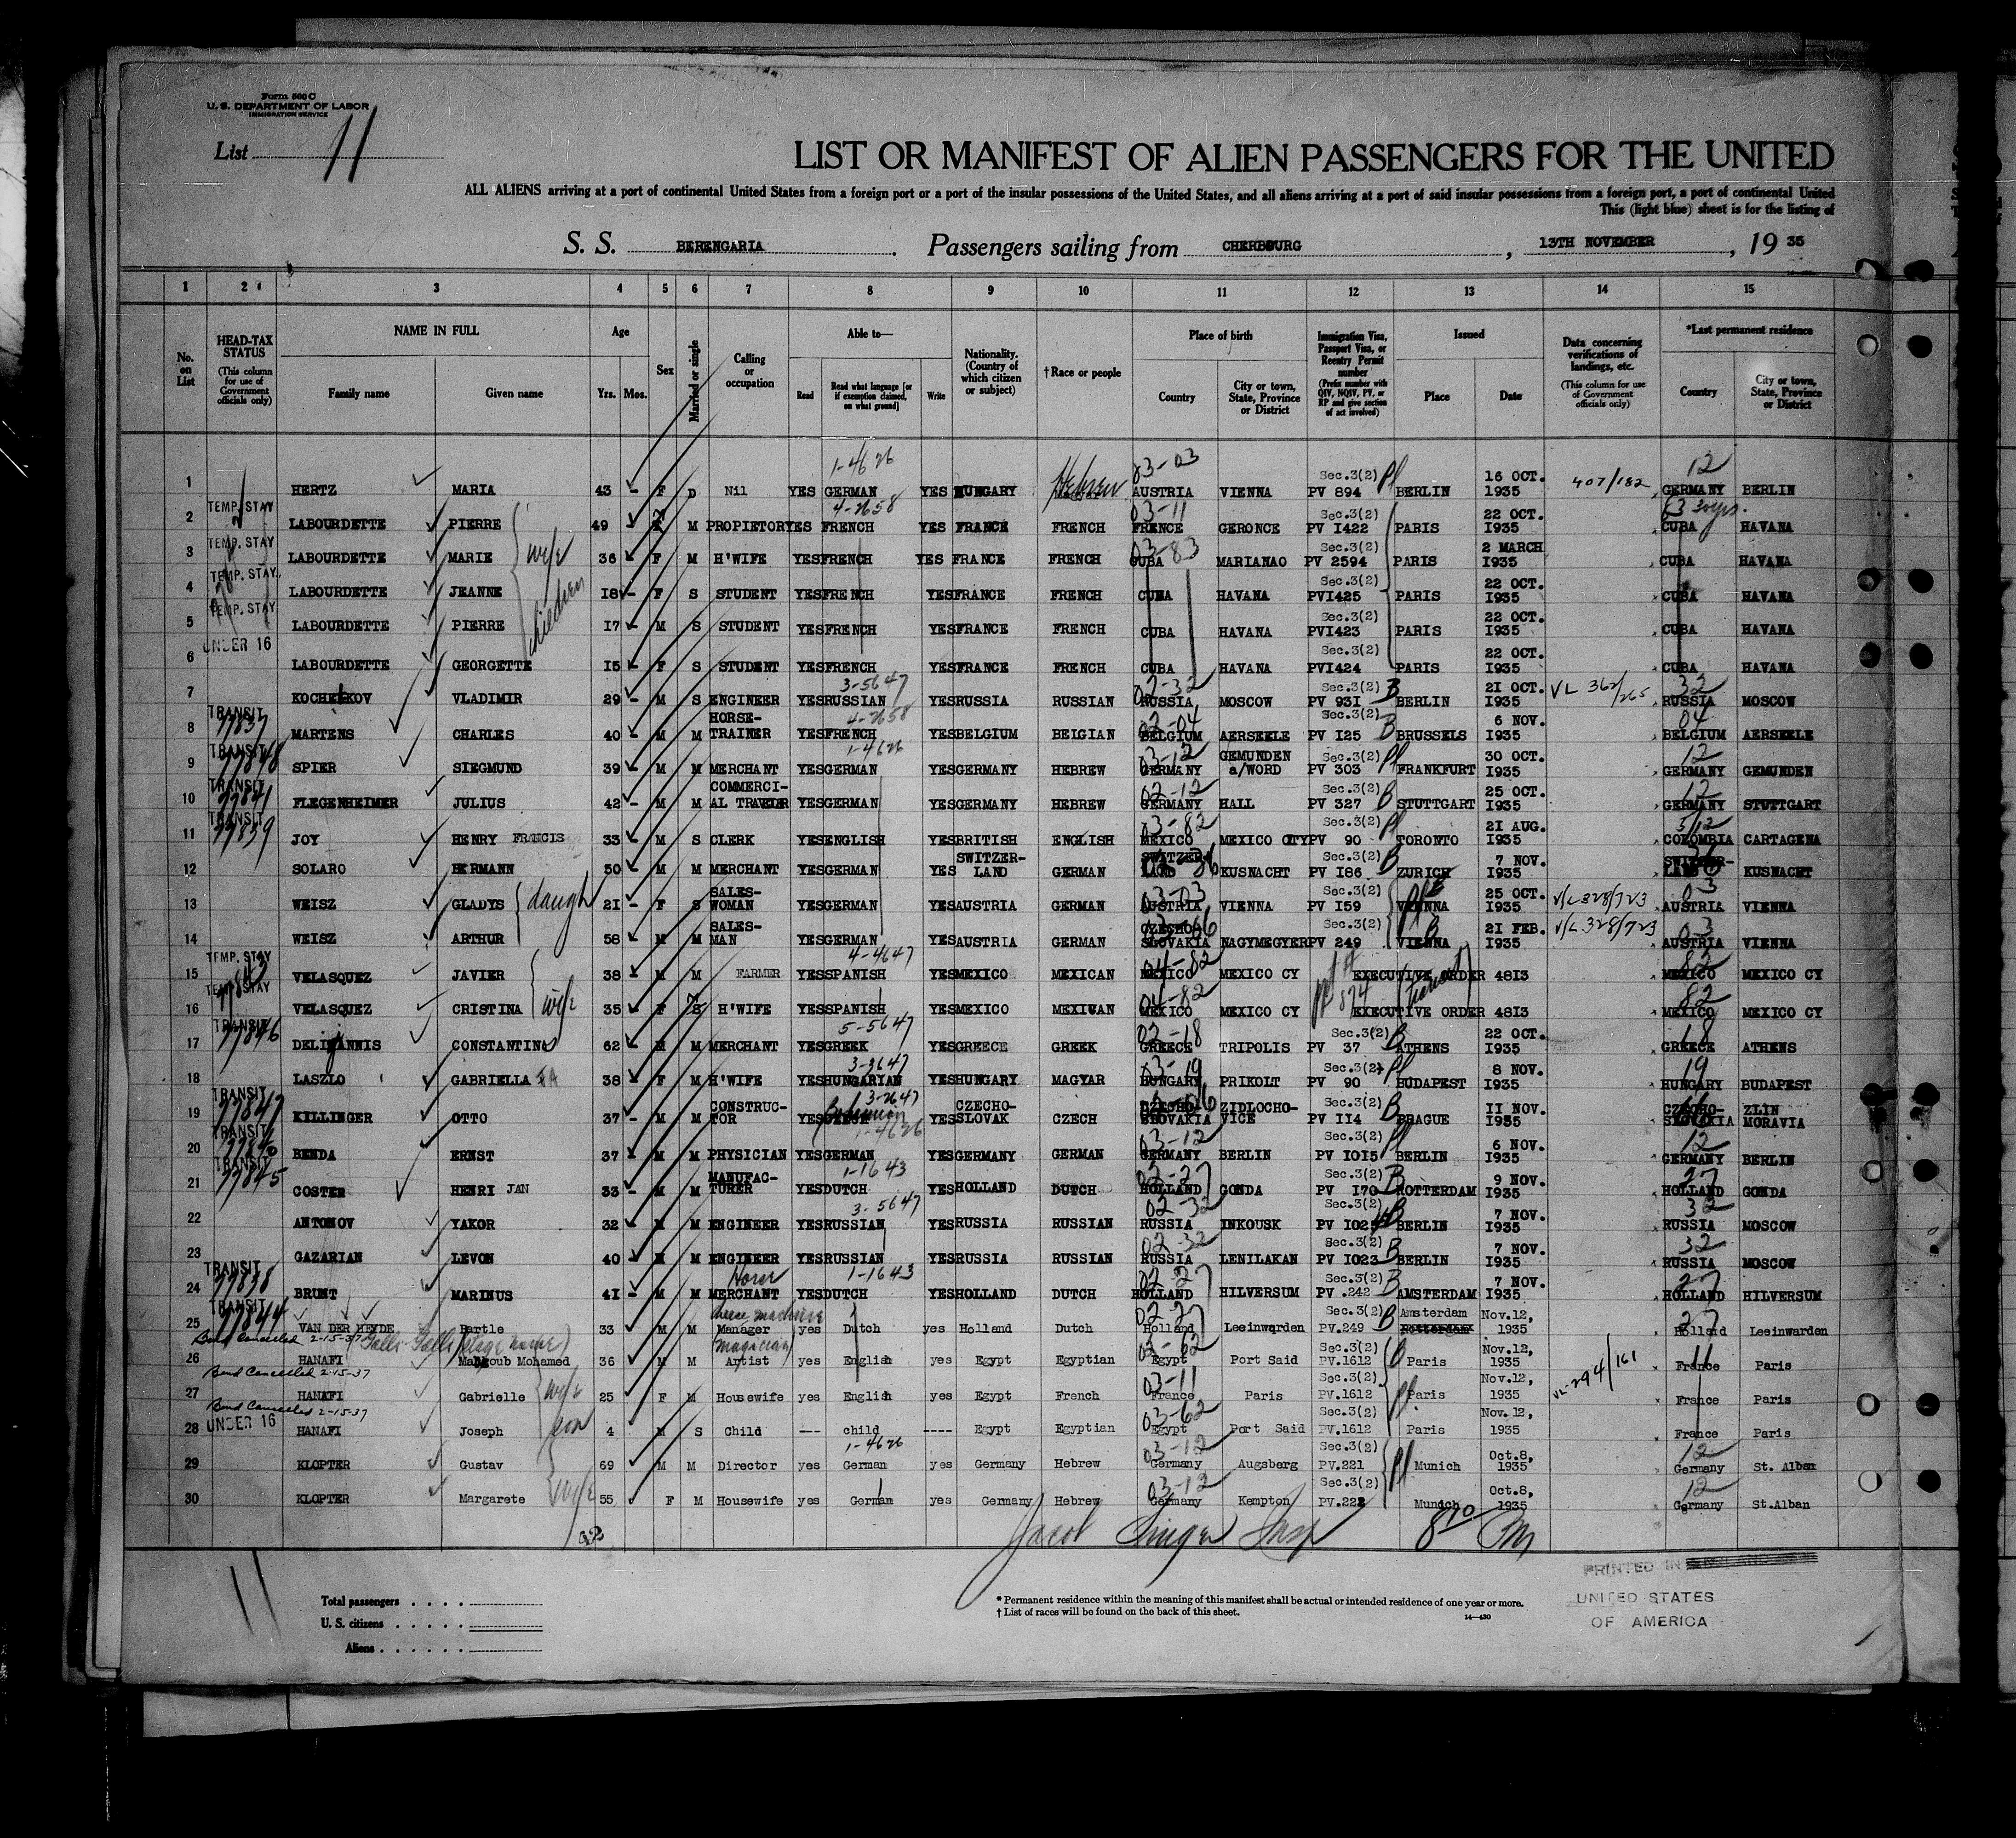 Form 500 C
U. S. DEPARTMENT OF LABOR
IMMIGRATION SERVICE
List 11
LIST OR MANIFEST OF ALIEN PASSENGERS FOR THE UNITED
ALL ALIENS arriving at a port of continental United States from a foreign port or a port of the insular possessions of the United States, and all aliens arriving at a port of said insular possessions from a foreign port, a port of continental United
This (light blue) sheet is for the listing of
S. S. BERENGARIA. Passengers sailing from CHERBOURG, 13TH NOVEMBER, 19 35
1 2 3 4 5 6 7 8 9 10 11 12 13 14 15
No. on List
HEAD-TAX STATUS (This column for use of Government officials only)
NAME IN FULL Family name Given name
Age Yrs. Mos.
Sex
Married or single
Calling or occupation
Able to— Read Read what language [or if exemption claimed, on what ground] Write
Nationality. (Country of which citizen or subject)
† Race or people
Place of birth Country City or town, State, Province or District
Immigration Visa, Passport Visa, or Reentry Permit number (Prefix number with QIV, NQIV, PV, or RP and give section of act involved)
Issued Place Date
Data concerning verifications of landings, etc. (This column for use of Government officials only)
*Last permanent residence Country City or town, State, Province or District
1 HERTZ MARIA 43 - F D Nil YES GERMAN 1-4626 YES HUNGARY Hebrew 03-03 AUSTRIA VIENNA Sec.3(2) PV 894 BERLIN 16 OCT. 1935 407/182 12 GERMANY BERLIN
2 TEMP. STAY LABOURDETTE PIERRE 49 - M PROPIETOR YES FRENCH 4-2658 YES FRANCE FRENCH 03-11 FRENCE GERONCE Sec.3(2) PV I422 PARIS 22 OCT. I935 CUBA HAVANA
3 TEMP. STAY LABOURDETTE MARIE wife 36 - F M H'WIFE YES FRENCH YES FRANCE FRENCH 03-83 CUBA MARIANAO Sec.3(2) PV 2594 PARIS 2 MARCH I935 CUBA HAVANA
4 TEMP. STAY LABOURDETTE JEANNE children I8 - F S STUDENT YES FRENCH YES FRANCE FRENCH CUBA HAVANA Sec.3(2) PVI425 PARIS 22 OCT. I935 CUBA HAVANA
5 TEMP. STAY LABOURDETTE PIERRE I7 - M S STUDENT YES FRENCH YES FRANCE FRENCH CUBA HAVANA Sec.3(2) PVI423 PARIS 22 OCT. I935 CUBA HAVANA
6 UNDER 16 LABOURDETTE GEORGETTE I5 - F S STUDENT YES FRENCH YES FRANCE FRENCH CUBA HAVANA Sec.3(2) PVI424 PARIS 22 OCT. I935 CUBA HAVANA
7 VLADIMIR 29 - M S ENGINEER YES RUSSIAN 3-5647 YES RUSSIA RUSSIAN 02-32 RUSSIA MOSCOW Sec.3(2) PV 93I B BERLIN 2I OCT. I935 VL 362/265 32 RUSSIA MOSCOW
8 TRANSIT 77837 MARTENS CHARLES 40 - M M HORSE-TRAINER YES FRENCH 4-2658 YES BELGIUM BEIGIAN 02-04 BELGIUM AERSEELE Sec.3(2) PV I25 B BRUSSELS 6 NOV. I935 04 BELGIUM AERSEELE
9 TRANSIT 77848 SPIER SIEGMUND 39 - M M MERCHANT YES GERMAN 1-4626 YES GERMANY HEBREW 03-12 GERMANY GEMUNDEN a/WORD Sec.3(2) PV 303 FRANKFURT 30 OCT. I935 12 GERMANY GEMUNDEN
10 TRANSIT 77841 FLEGENHEIMER JULIUS 42 - M M COMMERCI-AL TRAVELER YES GERMAN YES GERMANY HEBREW 02-12 GERMANY HALL Sec.3(2) PV 327 B STUTTGART 25 OCT. I935 12 GERMANY STUTTGART
11 TRANSIT 77839 JOY HENRY FRANCIS 33 - M S CLERK YES ENGLISH YES BRITISH ENGLISH 03-82 MEXICO MEXICO CITY Sec.3(2) PV 90 TORONTO 2I AUG. I935 COLOMBIA CARTAGENA
12 SOLARO HERMANN 50 - M M MERCHANT YES GERMAN YES SWITZER-LAND GERMAN SWITZER-LAND KUSNACHT Sec.3(2) PV I86 B ZURICH 7 NOV. I935 SWITZER-LAND KUSNACHT
13 WEISZ GLADYS daugh 2I - F S SALES-WOMAN YES GERMAN YES AUSTRIA GERMAN 03-03 AUSTRIA VIENNA Sec.3(2) PV I59 VIENNA 25 OCT. I935 V/L 328/723 03 AUSTRIA VIENNA
14 WEISZ ARTHUR 58 - M M SALES-MAN YES GERMAN YES AUSTRIA GERMAN CZECHO-SLOVAKIA NAGYMEGYER Sec.3(2) PV 249 B VIENNA 2I FEB. I935 V/L 328/723 03 AUSTRIA VIENNA
15 TEMP. STAY VELASQUEZ JAVIER 38 - M M FARMER YES SPANISH 4-4647 YES MEXICO MEXICAN 04-82 MEXICO MEXICO CY EXECUTIVE ORDER 48I3 82 MEXICO MEXICO CY
16 TEMP. STAY VELASQUEZ CRISTINA wife 35 - F S H'WIFE YES SPANISH YES MEXICO MEXICAN 04-82 MEXICO MEXICO CY EXECUTIVE ORDER 48I3 82 MEXICO MEXICO CY
17 TRANSIT 77846 DELIJANNIS CONSTANTINO 62 - M M MERCHANT YES GREEK 5-5647 YES GREECE GREEK 02-18 GREECE TRIPOLIS Sec.3(2) PV 37 B ATHENS 22 OCT. I935 18 GREECE ATHENS
18 LASZLO GABRIELLA 38 - F M H'WIFE YES HUNGARYAN 3-3647 YES HUNGARY MAGYAR 03-19 HUNGARY PRIKOLT Sec.3(2) PV 90 BUDAPEST 8 NOV. I935 19 HUNGARY BUDAPEST
19 TRANSIT 77847 KILLINGER OTTO 37 - M M CONSTRUC-TOR YES Bohemian 3-2647 YES CZECHO-SLOVAK CZECH CZECHO-SLOVAKIA ZIDLOCHO-VICE Sec.3(2) PV II4 B PRAGUE II NOV. I935 CZECHO-SLOVAKIA ZLIN MORAVIA
20 TRANSIT 77840 BENDA ERNST 37 - M M PHYSICIAN YES GERMAN 1-4626 YES GERMANY GERMAN 03-12 GERMANY BERLIN Sec.3(2) PV IOI5 BERLIN 6 NOV. I935 12 GERMANY BERLIN
21 TRANSIT 77845 COSTER HENRI JAN 33 - M M MANUFAC-TURER YES DUTCH 1-1643 YES HOLLAND DUTCH 02-27 HOLLAND GONDA Sec.3(2) PV I70 B ROTTERDAM 9 NOV. I935 27 HOLLAND GONDA
22 ANTONOV YAKOR 32 - M M ENGINEER YES RUSSIAN 3-5647 YES RUSSIA RUSSIAN 02-32 RUSSIA INKOUSK Sec.3(2) B BERLIN 7 NOV. I935 32 RUSSIA MOSCOW
23 GAZARIAN LEVON 40 - M M ENGINEER YES RUSSIAN YES RUSSIA RUSSIAN 02-32 RUSSIA LENILAKAN Sec.3(2) PV IO23 B BERLIN 7 NOV. I935 32 RUSSIA MOSCOW
24 TRANSIT 77838 BRUNT MARINUS 4I - M M Horse MERCHANT YES DUTCH 1-1643 YES HOLLAND DUTCH 02-27 HOLLAND HILVERSUM Sec.3(2) PV .242 B AMSTERDAM 7 NOV. I935 27 HOLLAND HILVERSUM
25 TRANSIT 77844 VAN DER HEYDE Bartle 33 M M Manager yes Dutch yes Holland Dutch 02-27 Holland Leeinwarden Sec.3(2) PV.249 B Amsterdam Rotterdam Nov.12, 1935 27 Holland Leeinwarden
26 Bond Cancelled 2-15-37 HANAFI (stage name) Mahgoub Mohamed 36 M M (magician) Artist yes English yes Egypt Egyptian 03-62 Egypt Port Said Sec.3(2) PV.1612 Paris Nov.12, 1935 VL-294/161 11 France Paris
27 Bond Cancelled 2-15-37 HANAFI Gabrielle wife 25 F M Housewife yes English yes Egypt French 03-11 France Paris Sec.3(2) PV.1612 Paris Nov.12, 1935 France Paris
28 Bond Cancelled 2-15-37 UNDER 16 HANAFI Joseph son 4 M S Child --- child ---- Egypt Egyptian 03-62 Egypt Port Said Sec.3(2) PV.1612 Paris Nov. 12, 1935 France Paris
29 KLOPTER Gustav 69 M M Director yes German 1-4626 yes Germany Hebrew 03-12 Germany Augsberg Sec.3(2) PV.221 Munich Oct.8, 1935 12 Germany St. Alban
30 KLOPTER Margarete wife 55 F M Housewife yes German yes Germany Hebrew 03-12 Germany Kempton Sec.3(2) PV.222 Munich Oct.8, 1935 12 Germany St.Alban
Jacob Singer Insp
11
Total passengers
U. S. citizens
Aliens
* Permanent residence within the meaning of this manifest shall be actual or intended residence of one year or more.
† List of races will be found on the back of this sheet.
14—430
PRINTED IN
UNITED STATES
OF AMERICA